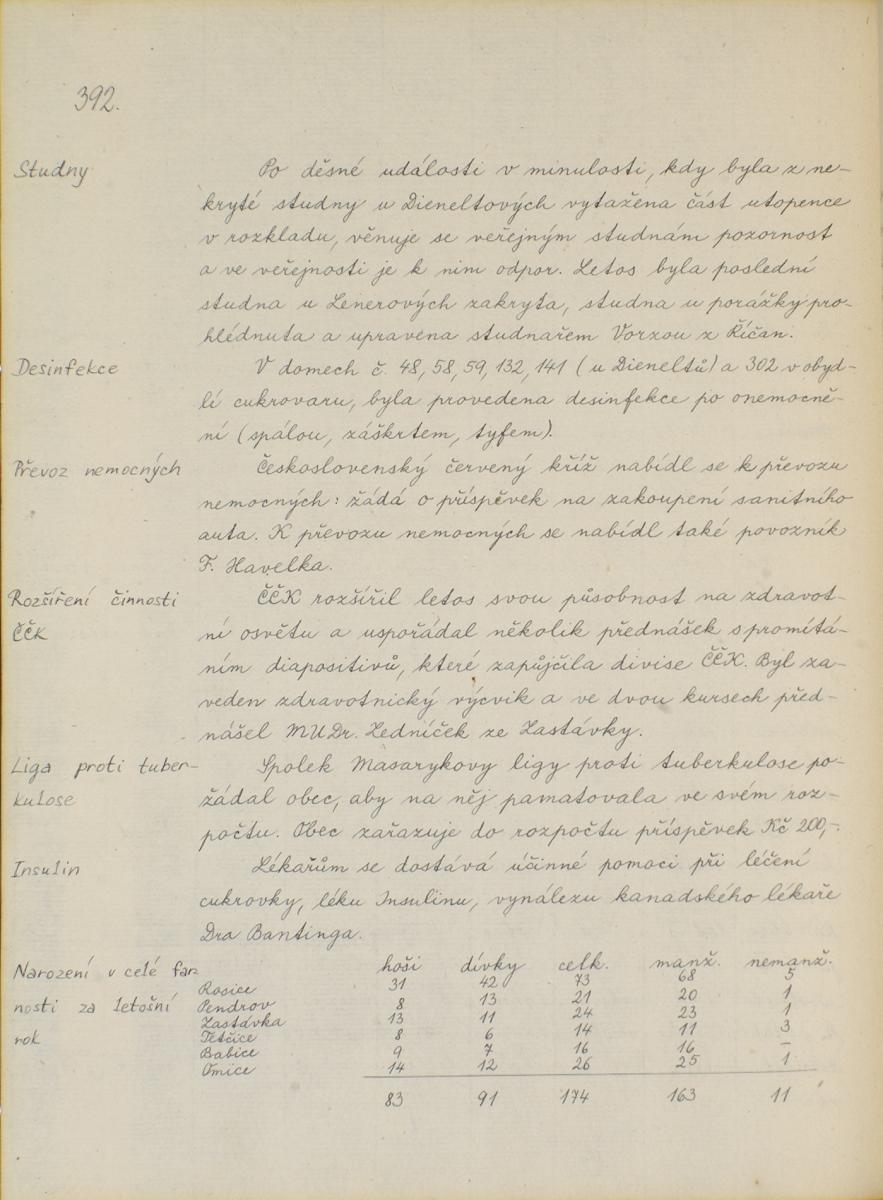 392.
Studny
Po děsné události v minulosti, kdy byla z ne-
kryté studny u Dieneltových vytažena část utopence
v rozkladu, věnuje se veřejným studnám pozornost
a ve veřejnosti je k nim odpor. Letos byla poslední
studna u Lenerových zakryta, studna u porážky pro-
hlédnuta a upravena studnařem Vorzou z Říčan.
Desinfekce
V domech č. 48, 58, 59, 132, 141 (u Dieneltů) a 302 v obyd-
lí cukrovaru, byla provedena desinfekce po onemocně-
ní (spálou, záškrtem, tyfem).
Převoz nemocných
Československý červený kříž nabídl se k převozu
nemocných: žádá o příspěvek na zakoupení sanitního
auta. K převozu nemocných se nabídl také povozník
F. Havelka.
Rozšíření činnosti
ČČK
ČČK rozšířil letos svou působnost na zdravot-
ní osvětu a uspořádal několik přednášek s promítá-
ním diapositivů, které zapůjčila divise ČČK. Byl za-
veden zdravotnický výcvik a ve dvou kursech před-
nášel MUDr. Ledníček ze Zastávky.
Liga proti tuber-
kulose
Spolek Masarykovy ligy proti tuberkulose po-
žádal obec, aby na něj pamatovala ve svém roz-
počtu. Obec zařazuje do rozpočtu příspěvek Kč 200,-.
Insulin
Lékařům se dostává účinné pomoci při léčení
cukrovky, léku Insulinu, vynálezu kanadského lékaře
Dra Bantinga.
Narození v celé far-
nosti za letošní
rok
hoši dívky celk. manž. nemanž.
Rosice 31 42 73 68 5
Pendrov 8 13 21 20 1
Zastávka 13 11 24 23 1
Tetčice 8 6 14 11 3
Babice 9 7 16 16 –
Omice 14 12 26 25 1
83 91 174 163 11